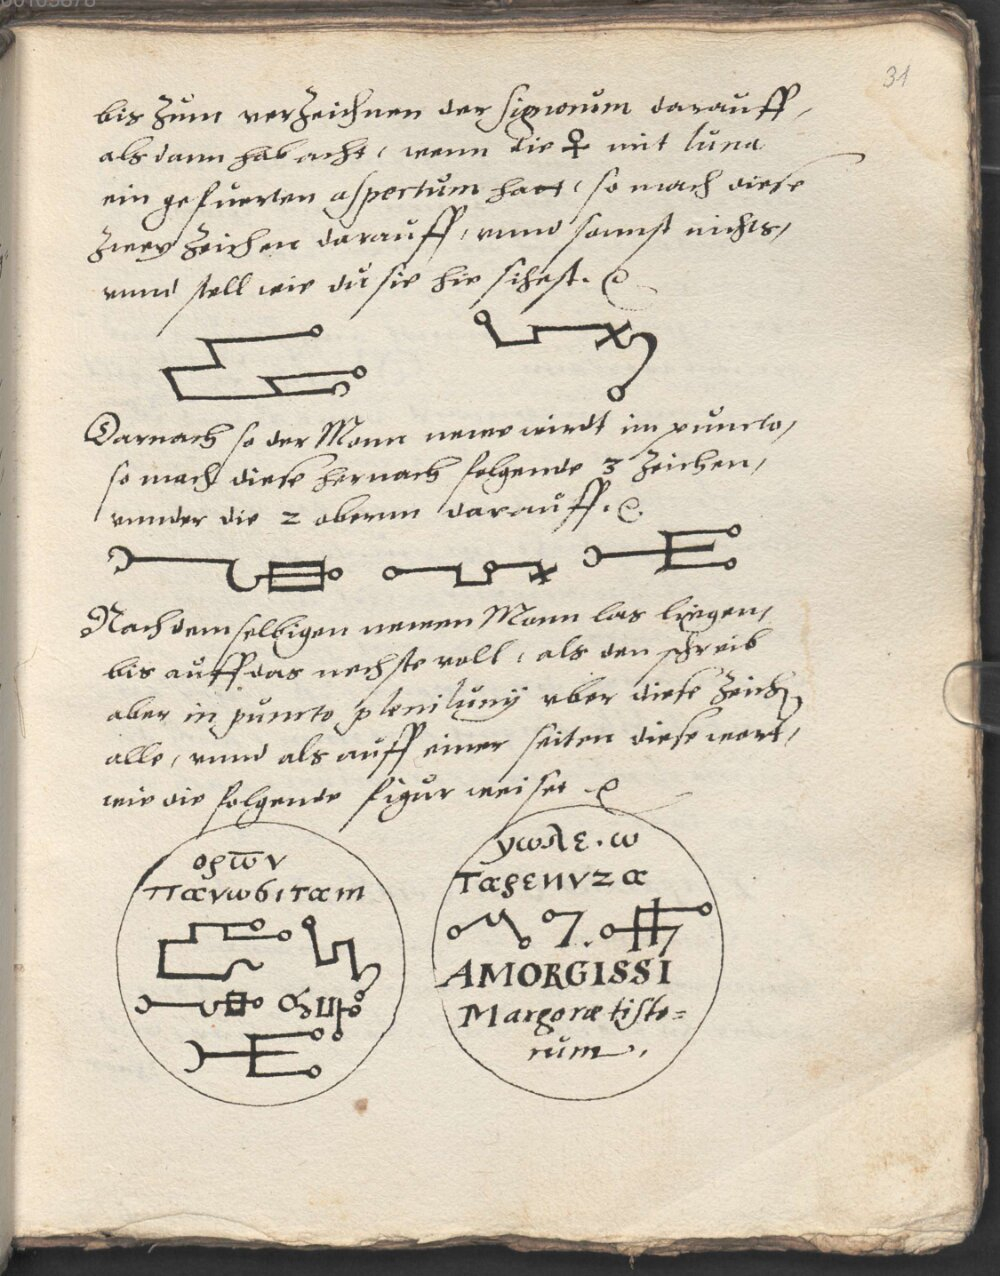 31
bis zum verzeichnen der signorum darauff,
als dann hab acht, wenn die ♀ mit luna
ein gefuerten aspectum hatt, so mach diese
zwey zeichen darauff, vnnd sonnst nichts,
vnnd stell wie du sie hie sihest.
Darnach so der Monn neuw wirdt im puncto,
so mach diese hernach folgende 3 zeichen,
vnnder die 2 obernn darauff.
Nach dem selbigen neuen Monn las liegen,
bis auff das nechste voll, als den schreib
aber in puncto plenilunÿ vber diese zeichen
alle, vnnd als auff einer seiten diese wort,
wie die folgende figur weiset
ορω̅ν
παυωδιταm
γωλε.ω
Ταρεννzα
7.
AMORGISSI
Margoræ tisto=
rum.